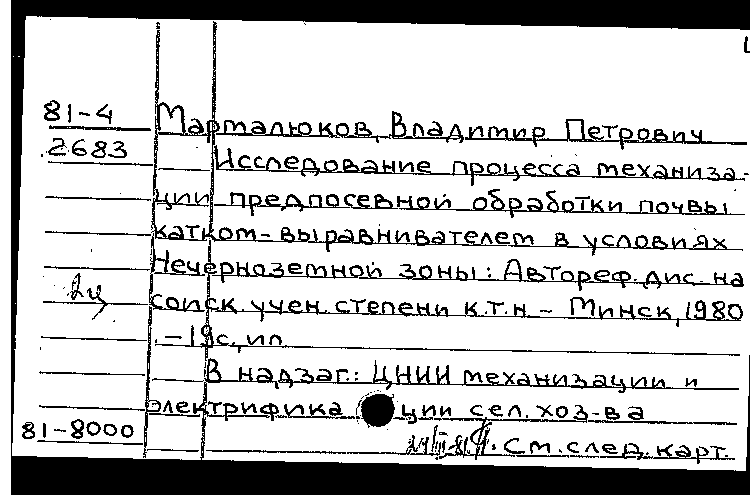 81-4 Марталюков, Владимир Петрович
2683 Исследование процесса механиза-
ции предпосевной обработки почвы
катком-выравнивателем в условиях
Нечерноземной зоны: Автореф. дис. на
соиск. учен. степени к.т.н - Минск, 1980
.-19с., ил
В надзаг.: ЦНИИ механизации и
электрифика ции сел. хоз-ва
81-8000 См. след. карт.